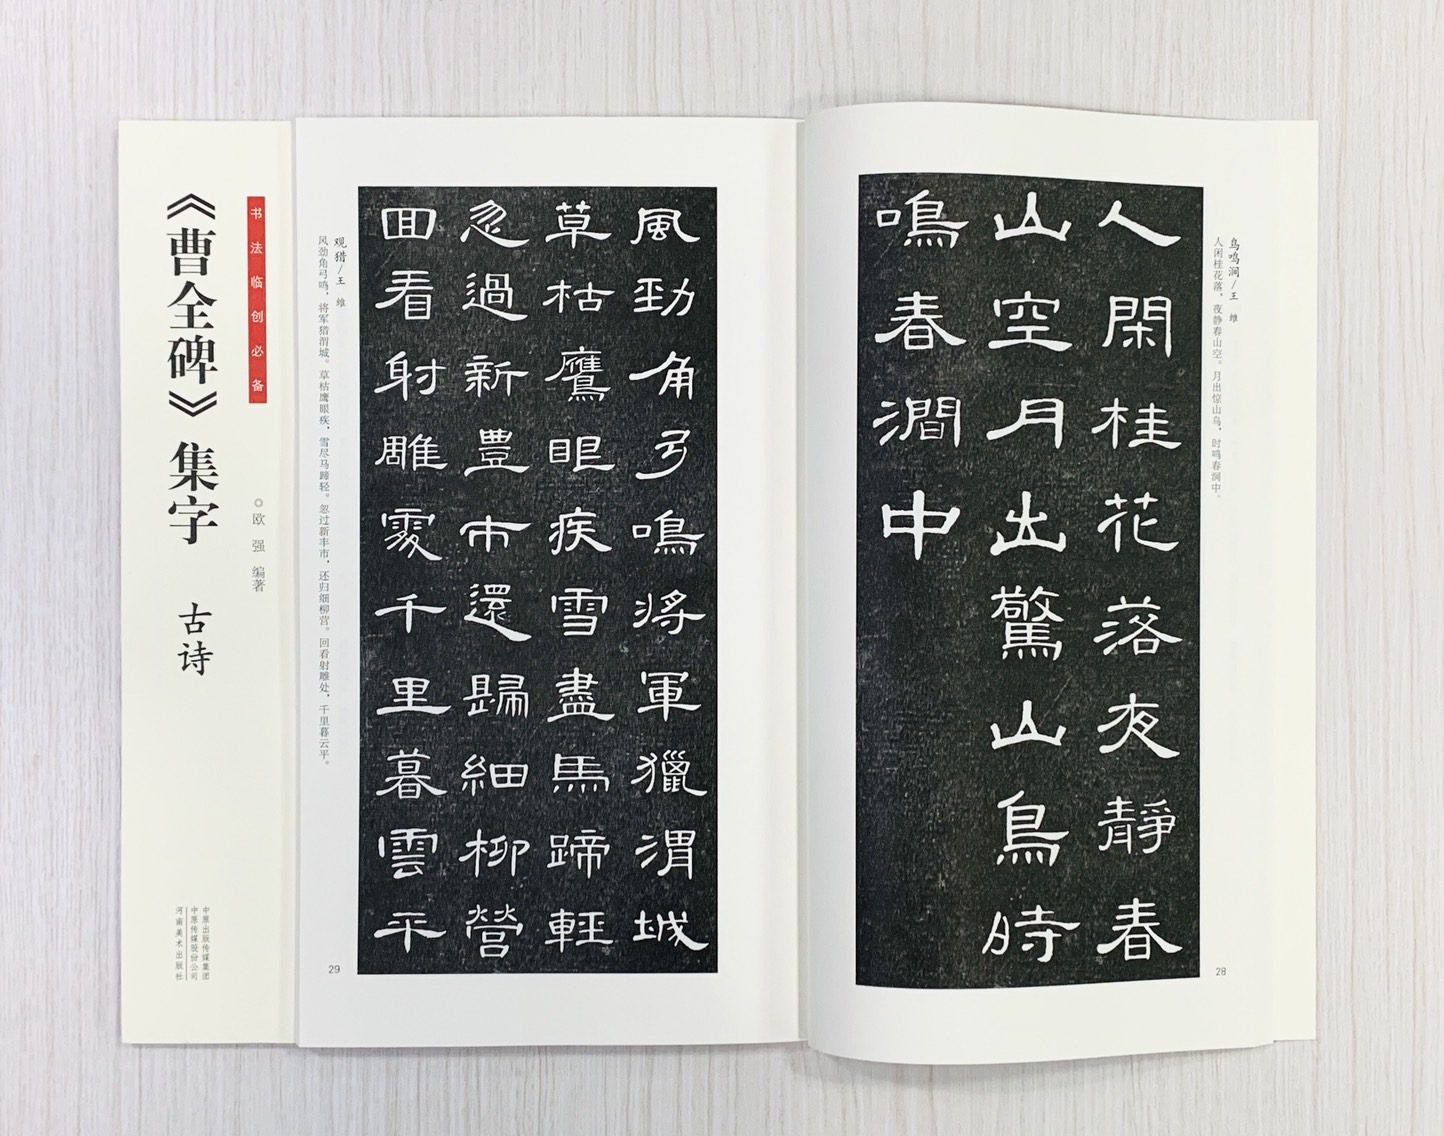 人閑桂花落夜靜春
山空月出驚山鳥時
鳴春澗中
鸟鸣涧/王 维
人闲桂花落，夜静春山空。月出惊山鸟，时鸣春涧中。
28
風勁角弓鳴將軍獵渭城
草枯鷹眼疾雪盡馬蹄輕
忽過新豐市還歸細柳營
回看射雕處千里暮雲平
观猎/王 维
风劲角弓鸣，将军猎渭城。草枯鹰眼疾，雪尽马蹄轻。忽过新丰市，还归细柳营。回看射雕处，千里暮云平。
29
书法临创必备
《曹全碑》集字 古诗
◎欧 强 编著
中原出版传媒集团
中原传媒股份公司
河南美术出版社